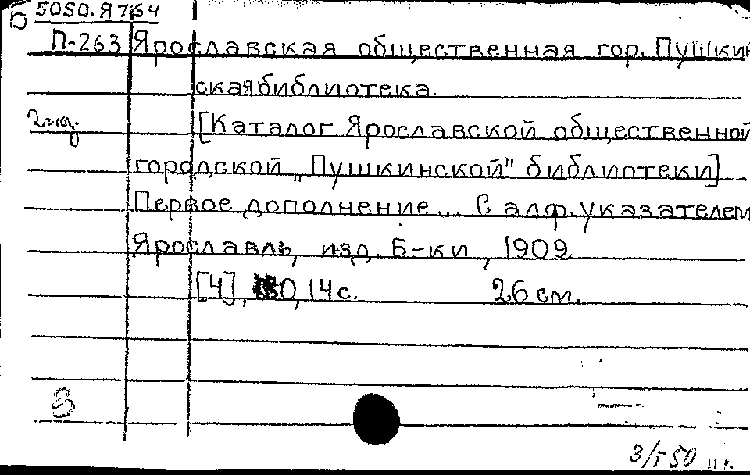 Б 5050.Я7164
П-263 Ярославская общественная гор. Пушкин
ская библиотека.
2 экз. [Каталог Ярославской общественной
городской „Пушкинской" библиотеки]
Первое дополнение... С алф. указателем
Ярославль, изд. Б-ки, 1909.
[4], 14 с. 26 см.
3/г 50